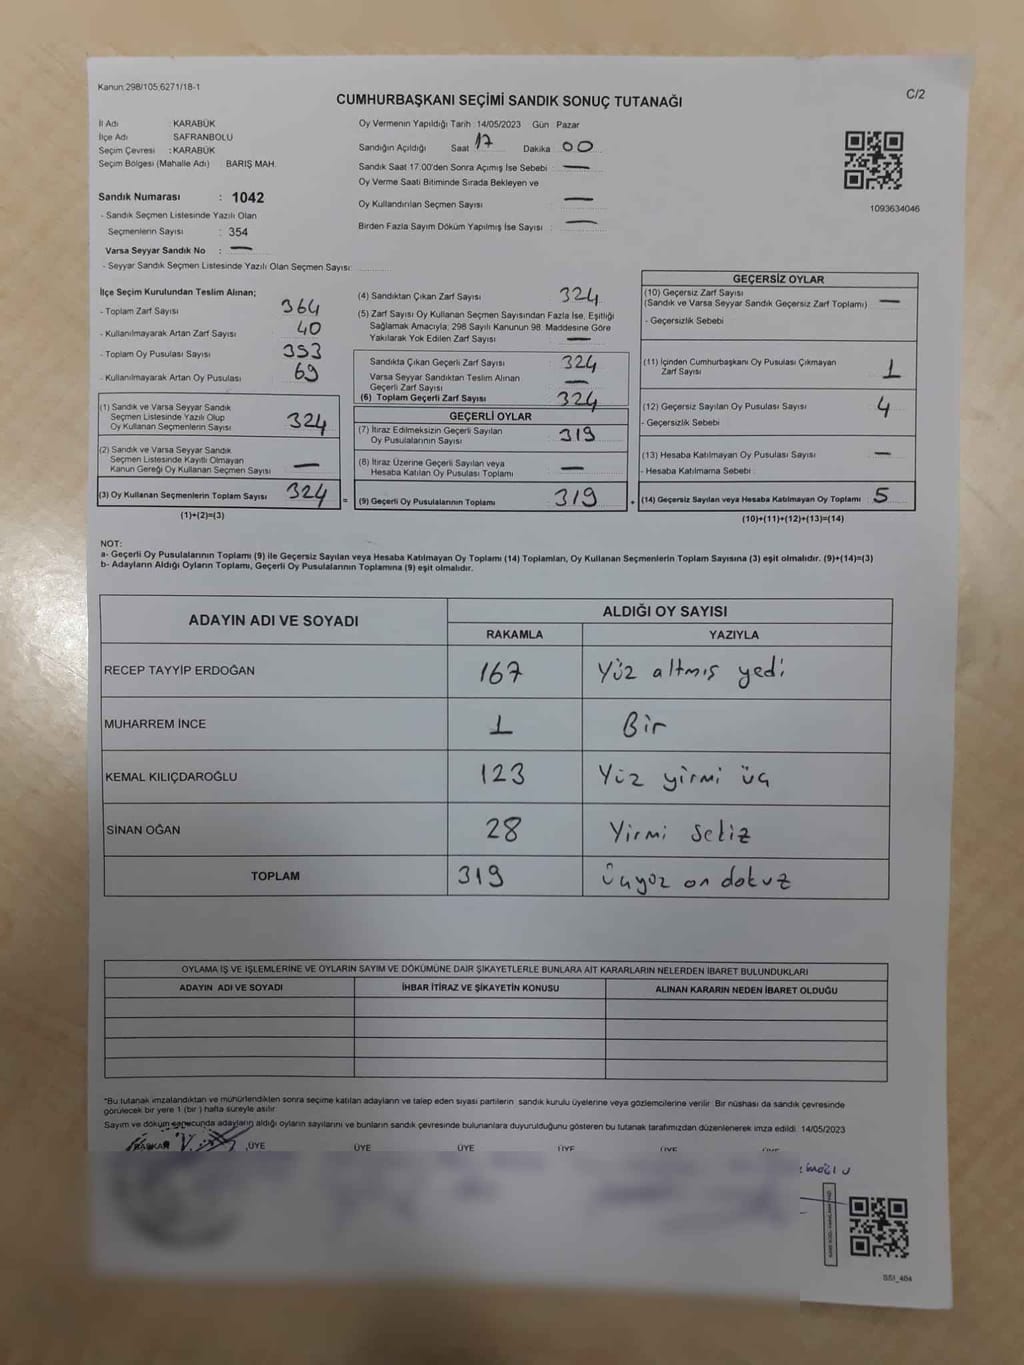 Kanun:298/105;6271/18-1
C/2
CUMHURBAŞKANI SEÇİMİ SANDIK SONUÇ TUTANAĞI
İl Adı KARABÜK
İlçe Adı SAFRANBOLU
Seçim Çevresi : KARABÜK
Seçim Bölgesi (Mahalle Adı) BARIŞ MAH.
Sandık Numarası : 1042
- Sandık Seçmen Listesinde Yazılı Olan
Seçmenlerin Sayısı : 354
Varsa Seyyar Sandık No : —
- Seyyar Sandık Seçmen Listesinde Yazılı Olan Seçmen Sayısı:
Oy Vermenin Yapıldığı Tarih : 14/05/2023 Gün : Pazar
Sandığın Açıldığı Saat 17 Dakika 00
Sandık Saat 17:00'den Sonra Açımış İse Sebebi —
Oy Verme Saati Bitiminde Sırada Bekleyen ve
Oy Kullandırılan Seçmen Sayısı —
Birden Fazla Sayım Döküm Yapılmış İse Sayısı : —
1093634046
İlçe Seçim Kurulundan Teslim Alınan;
- Toplam Zarf Sayısı 364
- Kullanılmayarak Artan Zarf Sayısı 40
- Toplam Oy Pusulası Sayısı 393
- Kullanılmayarak Artan Oy Pusulası 69
(1) Sandık ve Varsa Seyyar Sandık
Seçmen Listesinde Yazılı Olup
Oy Kullanan Seçmenlerin Sayısı 324
(2) Sandık ve Varsa Seyyar Sandık
Seçmen Listesinde Kayıtlı Olmayan
Kanun Gereği Oy Kullanan Seçmen Sayısı —
(3) Oy Kullanan Seçmenlerin Toplam Sayısı 324 =
(1)+(2)=(3)
(4) Sandıktan Çıkan Zarf Sayısı 324
(5) Zarf Sayısı Oy Kullanan Seçmen Sayısından Fazla İse, Eşitliği
Sağlamak Amacıyla; 298 Sayılı Kanunun 98. Maddesine Göre
Yakılarak Yok Edilen Zarf Sayısı —
Sandıkta Çıkan Geçerli Zarf Sayısı 324
Varsa Seyyar Sandıktan Teslim Alınan
Geçerli Zarf Sayısı —
(6) Toplam Geçerli Zarf Sayısı 324
GEÇERLİ OYLAR
(7) İtiraz Edilmeksizin Geçerli Sayılan
Oy Pusulalarının Sayısı 319
(8) İtiraz Üzerine Geçerli Sayılan veya
Hesaba Katılan Oy Pusulası Toplamı —
(9) Geçerli Oy Pusulalarının Toplamı 319 +
GEÇERSİZ OYLAR
(10) Geçersiz Zarf Sayısı
(Sandık ve Varsa Seyyar Sandık Geçersiz Zarf Toplamı) —
- Geçersizlik Sebebi
(11) İçinden Cumhurbaşkanı Oy Pusulası Çıkmayan
Zarf Sayısı 1
(12) Geçersiz Sayılan Oy Pusulası Sayısı 4
- Geçersizlik Sebebi
(13) Hesaba Katılmayan Oy Pusulası Sayısı —
- Hesaba Katılmama Sebebi
(14) Geçersiz Sayılan veya Hesaba Katılmayan Oy Toplamı 5
(10)+(11)+(12)+(13)=(14)
NOT:
a- Geçerli Oy Pusulalarının Toplamı (9) ile Geçersiz Sayılan veya Hesaba Katılmayan Oy Toplamı (14) Toplamları, Oy Kullanan Seçmenlerin Toplam Sayısına (3) eşit olmalıdır. (9)+(14)=(3)
b- Adayların Aldığı Oyların Toplamı, Geçerli Oy Pusulalarının Toplamına (9) eşit olmalıdır.
ADAYIN ADI VE SOYADI ALDIĞI OY SAYISI
RAKAMLA YAZIYLA
RECEP TAYYİP ERDOĞAN 167 Yüz altmış yedi
MUHARREM İNCE 1 Bir
KEMAL KILIÇDAROĞLU 123 Yüz yirmi üç
SİNAN OĞAN 28 Yirmi sekiz
TOPLAM 319 Üçyüz on dokuz
OYLAMA İŞ VE İŞLEMLERİNE VE OYLARIN SAYIM VE DÖKÜMÜNE DAİR ŞİKAYETLERLE BUNLARA AİT KARARLARIN NELERDEN İBARET BULUNDUKLARI
ADAYIN ADI VE SOYADI İHBAR İTİRAZ VE ŞİKAYETİN KONUSU ALINAN KARARIN NEDEN İBARET OLDUĞU
*Bu tutanak imzalandıktan ve mühürlendikten sonra seçime katılan adayların ve talep eden siyasi partilerin sandık kurulu üyelerine veya gözlemcilerine verilir. Bir nüshası da sandık çevresinde
görülecek bir yere 1 (bir ) hafta süreyle asılır.
Sayım ve döküm sonucunda adayların aldığı oyların sayılarını ve bunların sandık çevresinde bulunanlara duyurulduğunu gösteren bu tutanak tarafımızdan düzenlenerek imza edildi. 14/05/2023
BAŞKAN ÜYE ÜYE ÜYE ÜYE ÜYE ÜYE